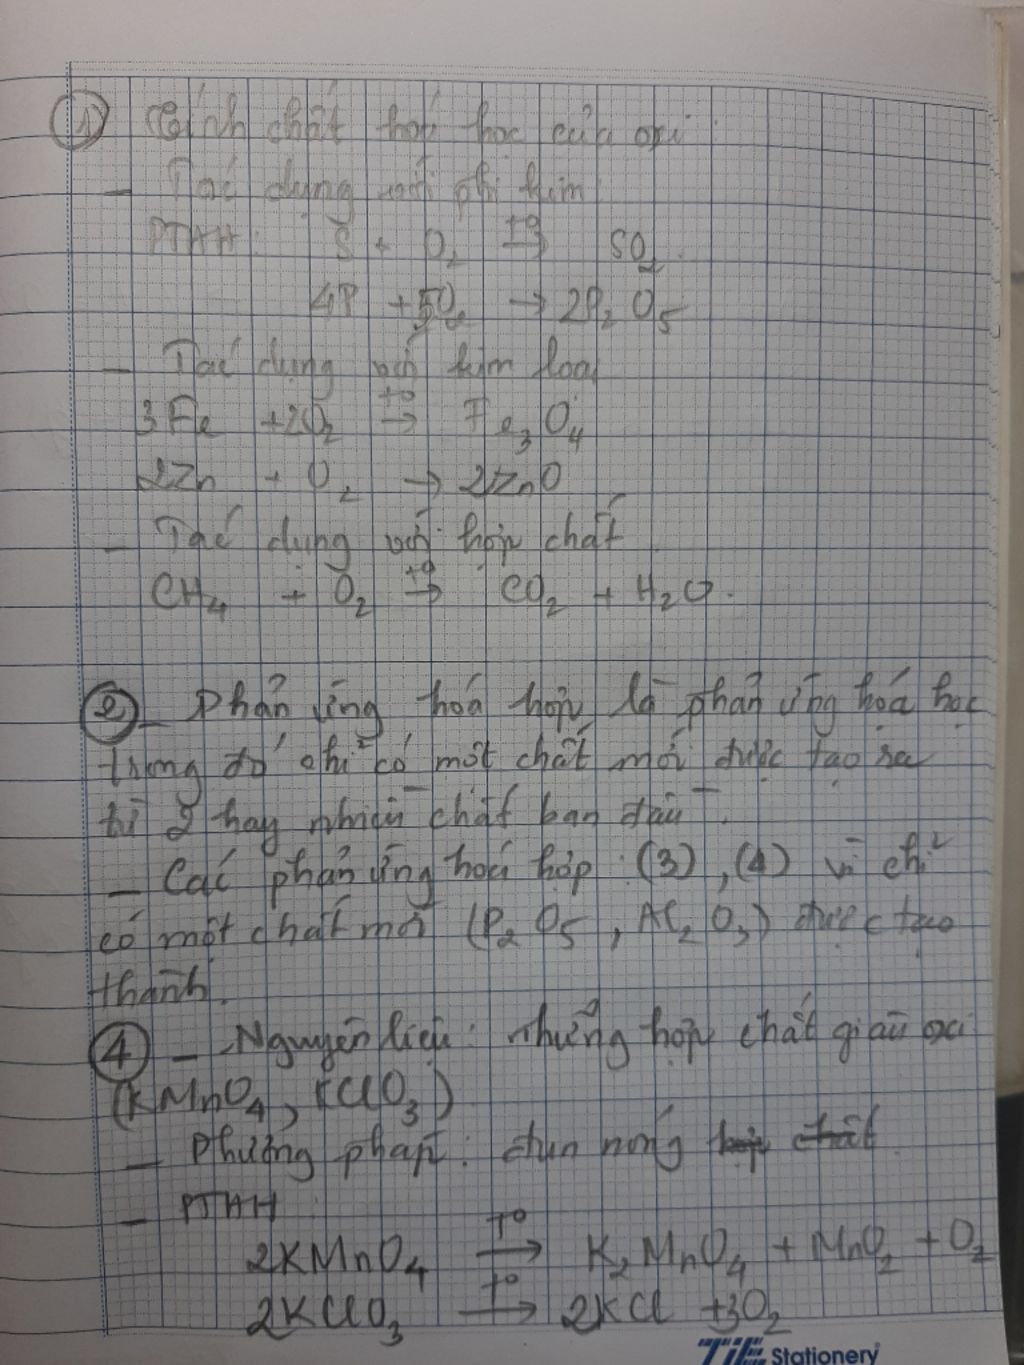 ① Tính chất hoá học của oxi:
- Tác dụng với phi kim
PTHH: S + O₂ →(t°) SO₂.
4P + 5O₂ → 2P₂O₅
- Tác dụng với kim loại
3Fe + 2O₂ →(t°) Fe₃O₄
2Zn + O₂ → 2ZnO
- Tác dụng với hợp chất
CH₄ + O₂ →(t°) CO₂ + H₂O.
② - Phản ứng hoá hợp là phản ứng hóa học
trong đó chỉ có một chất mới được tạo ra
từ 2 hay nhiều chất ban đầu.
- Các phản ứng hoá hợp : (3), (4) vì chỉ
có một chất mới (P₂O₅, Al₂O₃) được tạo
thành.
④ - Nguyên liệu : Những hợp chất giàu oxi
(KMnO₄, KClO₃)
- Phương pháp : đun nóng hợp chất
- PTHH
2KMnO₄ →(t°) K₂MnO₄ + MnO₂ + O₂
2KClO₃ →(t°) 2KCl + 3O₂
TiE Stationery